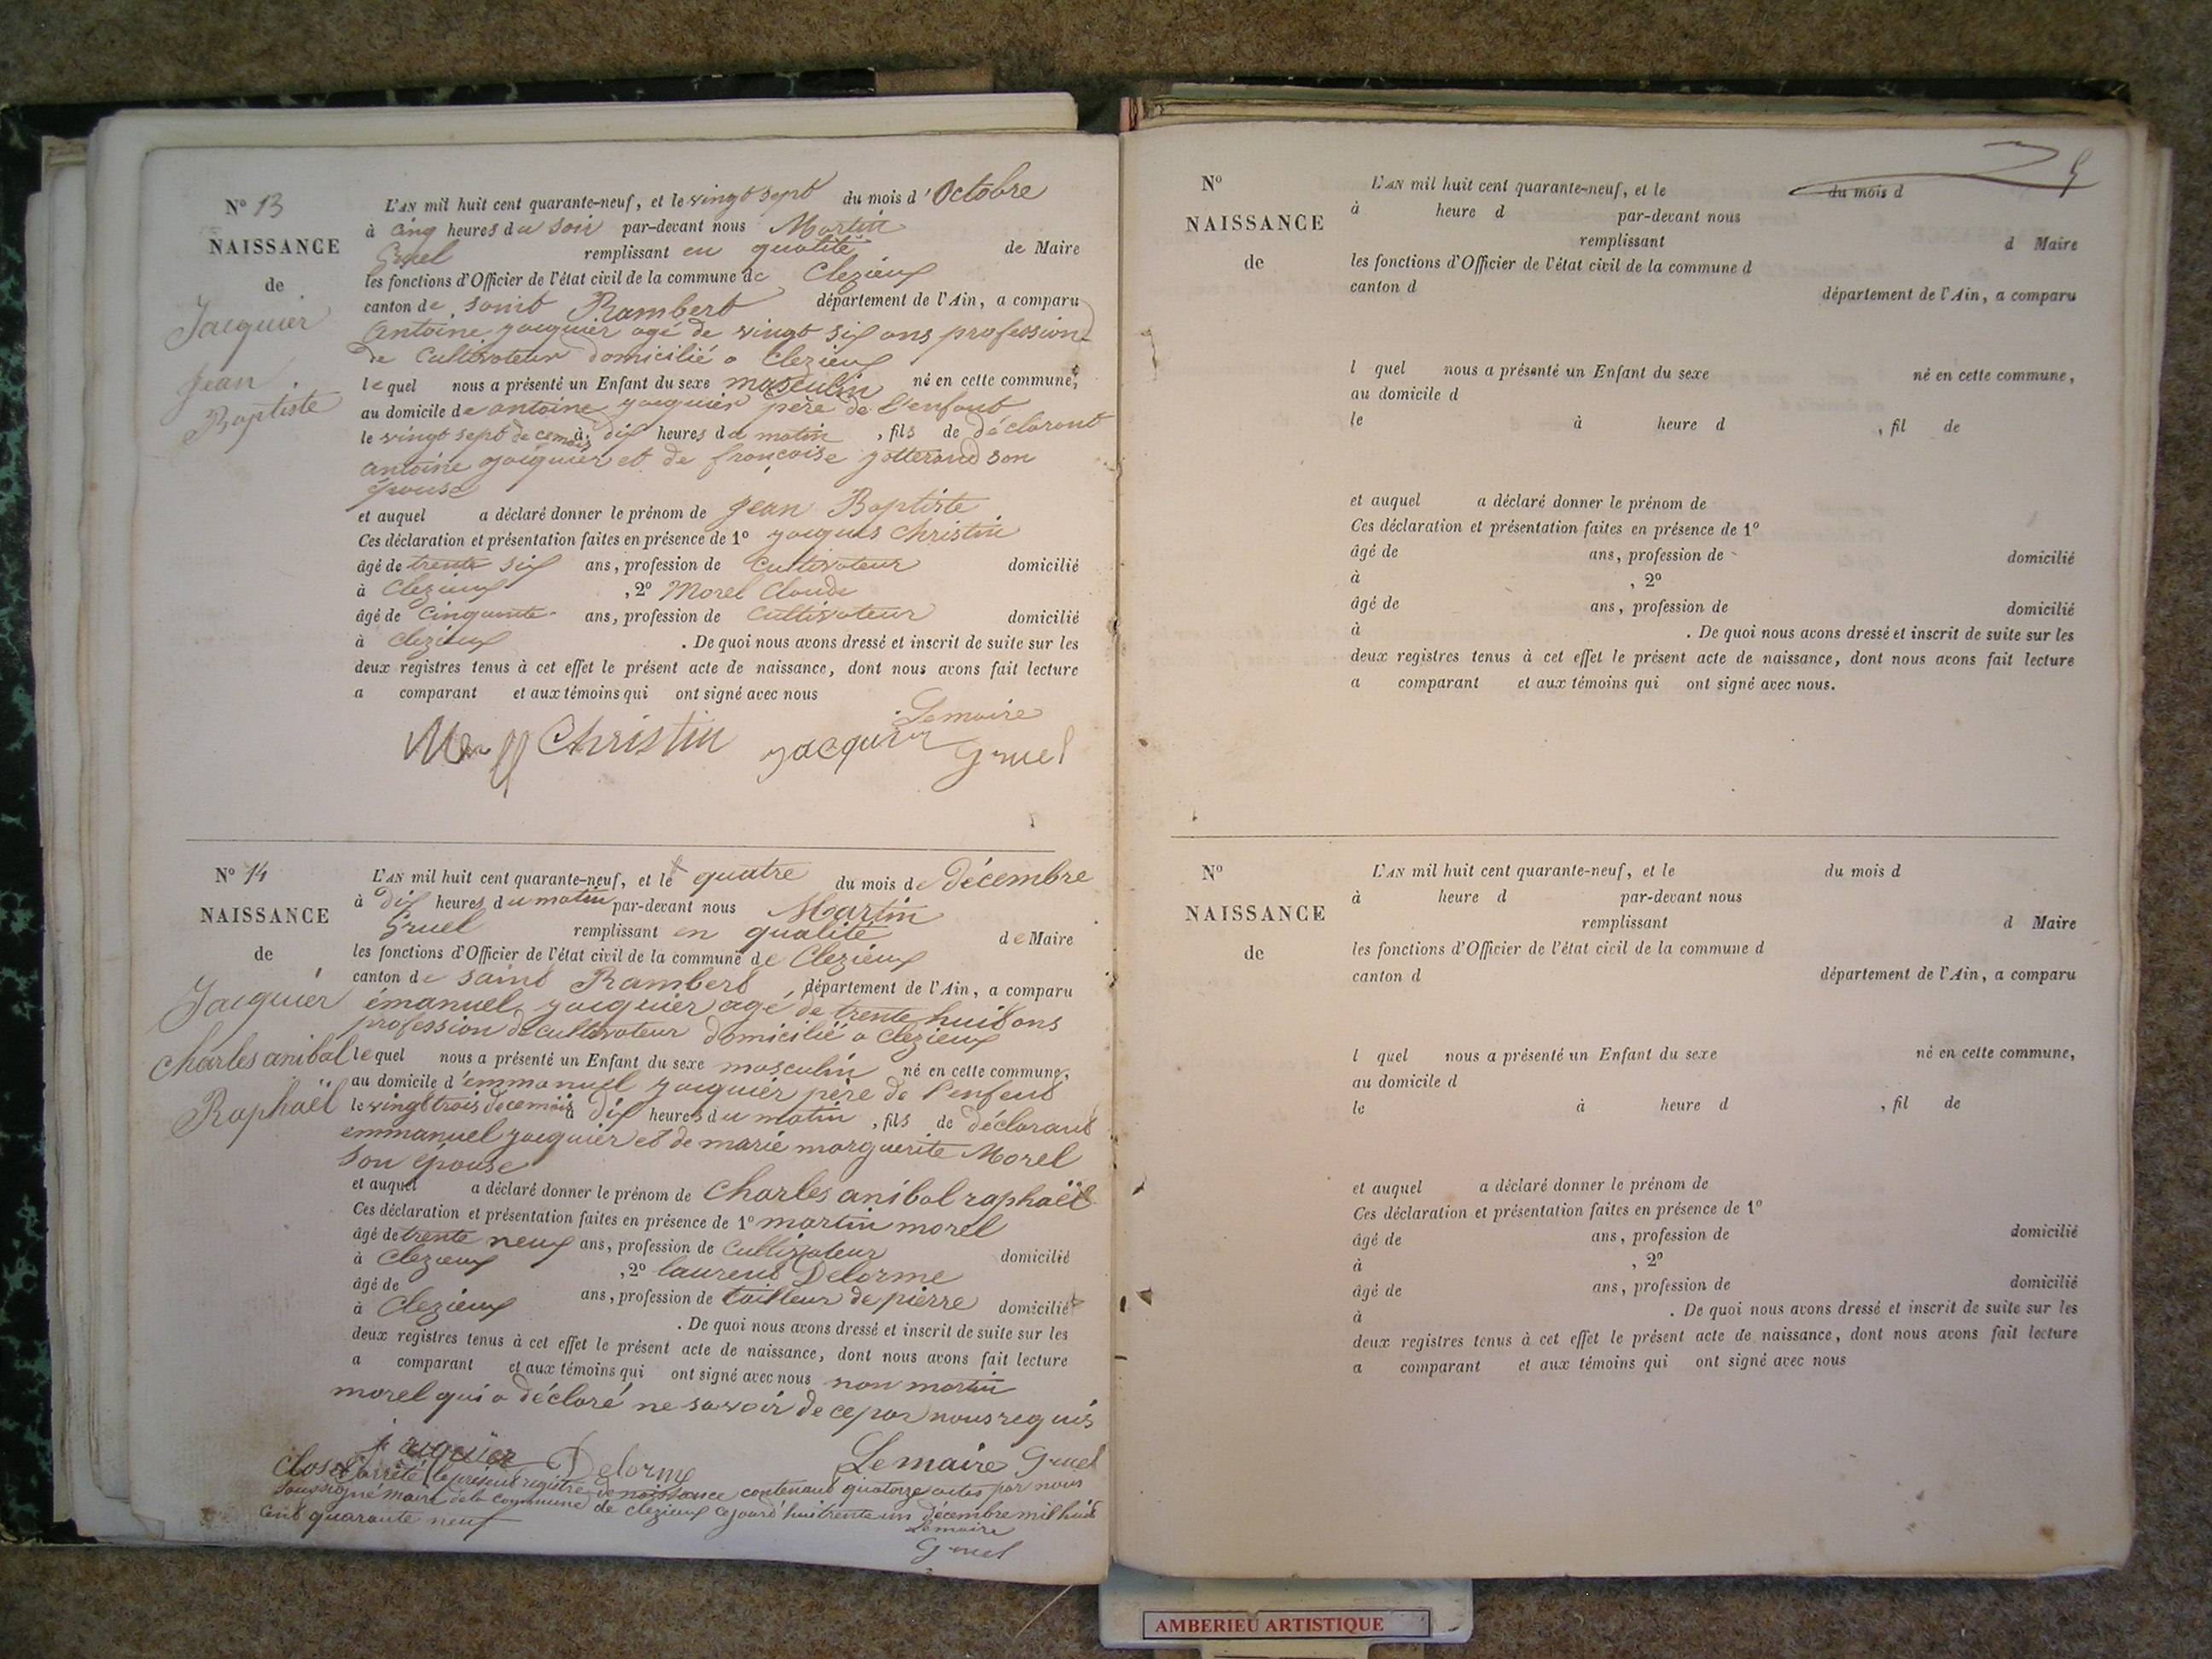 N° 13
NAISSANCE
de
Jacquier
Jean
Baptiste
L'AN mil huit cent quarante-neuf, et le vingt sept du mois d'Octobre
à cinq heures du soir par-devant nous Martin
Gruel remplissant en qualité de Maire
les fonctions d'Officier de l'état civil de la commune de Clezieux
canton de saint Rambert département de l'Ain, a comparu
Antoine jacquier agé de vingt six ans profession
de Cultivateur domicilié a Clezieux
lequel nous a présenté un Enfant du sexe masculin né en cette commune,
au domicile de antoine jacquier père de l'enfant
le vingt sept de ce mois à dix heures du matin, fils de déclarant
antoine jacquier et de françoise jotterand son
épouse
et auquel a déclaré donner le prénom de jean Baptiste
Ces déclaration et présentation faites en présence de 1° jacques Christin
âgé de trente six ans, profession de Cultivateur domicilié
à Clezieux, 2° Morel Claude
âgé de Cinquante ans, profession de Cultivateur domicilié
à Clezieux. De quoi nous avons dressé et inscrit de suite sur les
deux registres tenus à cet effet le présent acte de naissance, dont nous avons fait lecture
a comparant et aux témoins qui ont signé avec nous
Lemaire
Christin jacquier Gruel
N° 14
NAISSANCE
de
Jacquier
Charles anibal
Raphaël
L'AN mil huit cent quarante-neuf, et le quatre du mois de Décembre
à Dix heures du matin par-devant nous Martin
Gruel remplissant en qualité de Maire
les fonctions d'Officier de l'état civil de la commune de Clezieux
canton de saint Rambert, département de l'Ain, a comparu
émanuel jacquier agé de trente huit ans
profession de cultivateur domicilié a Clezieux
lequel nous a présenté un Enfant du sexe masculin né en cette commune,
au domicile d'emmanuel jacquier père de l'enfent
le vingt trois de ce mois à Dix heures du matin, fils de déclarant
emmanuel jacquier et de marie marguerite Morel
son épouse
et auquel a déclaré donner le prénom de Charles anibal raphaël
Ces déclaration et présentation faites en présence de 1° martin morel
âgé de trente neuf ans, profession de Cultivateur domicilié
à Clezieux, 2° laurent Delorme
âgé de ans, profession de tailleur de pierre domicilié
à Clezieux. De quoi nous avons dressé et inscrit de suite sur les
deux registres tenus à cet effet le présent acte de naissance, dont nous avons fait lecture
a comparant et aux témoins qui ont signé avec nous non martin
morel qui a déclaré ne savoir de ce par nous requis
jacquier Delorme Lemaire Gruel
Clos et arrêté le présent registre de naissance contenant quatorze actes par nous
soussigné maire de la commune de clezieux ce jourd'hui trente un décembre mil huit
cent quarante neuf
Lemaire
Gruel
N°
NAISSANCE
de
L'AN mil huit cent quarante-neuf, et le du mois d
à heure d par-devant nous
remplissant d Maire
les fonctions d'Officier de l'état civil de la commune d
canton d département de l'Ain, a comparu
l quel nous a présenté un Enfant du sexe né en cette commune,
au domicile d
le à heure d, fil de
et auquel a déclaré donner le prénom de
Ces déclaration et présentation faites en présence de 1°
âgé de ans, profession de domicilié
à, 2°
âgé de ans, profession de domicilié
à. De quoi nous avons dressé et inscrit de suite sur les
deux registres tenus à cet effet le présent acte de naissance, dont nous avons fait lecture
a comparant et aux témoins qui ont signé avec nous.
N°
NAISSANCE
de
L'AN mil huit cent quarante-neuf, et le du mois d
à heure d par-devant nous
remplissant d Maire
les fonctions d'Officier de l'état civil de la commune d
canton d département de l'Ain, a comparu
l quel nous a présenté un Enfant du sexe né en cette commune,
au domicile d
le à heure d, fil de
et auquel a déclaré donner le prénom de
Ces déclaration et présentation faites en présence de 1°
âgé de ans, profession de domicilié
à, 2°
âgé de ans, profession de domicilié
à. De quoi nous avons dressé et inscrit de suite sur les
deux registres tenus à cet effet le présent acte de naissance, dont nous avons fait lecture
a comparant et aux témoins qui ont signé avec nous
AMBERIEU ARTISTIQUE